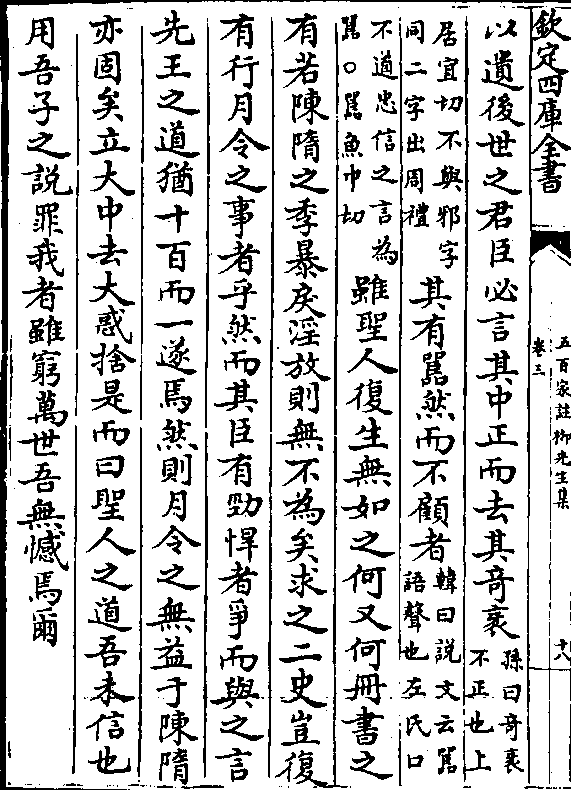 欽定四庫全書
五百家註柳先生集
卷三
十八
以遺後世之君臣必言其中正而去其竒衺
孫曰竒衺
不正也上
居宜切不與邪字
同二字出周禮
其有嚚然而不顧者
韓曰説文云嚚
語聲也左氏口
不道忠信之言為
嚚○嚚魚巾切
雖聖人復生無如之何又何冊書之
有若陳隋之季暴戾淫放則無不為矣求之二史豈復
有行月令之事者乎然而其臣有勁悍者爭而與之言
先王之道猶十百而一遂焉然則月令之無益于陳隋
亦固矣立大中去大惑捨是而曰聖人之道吾未信也
用吾子之説罪我者雖窮萬世吾無憾焉爾